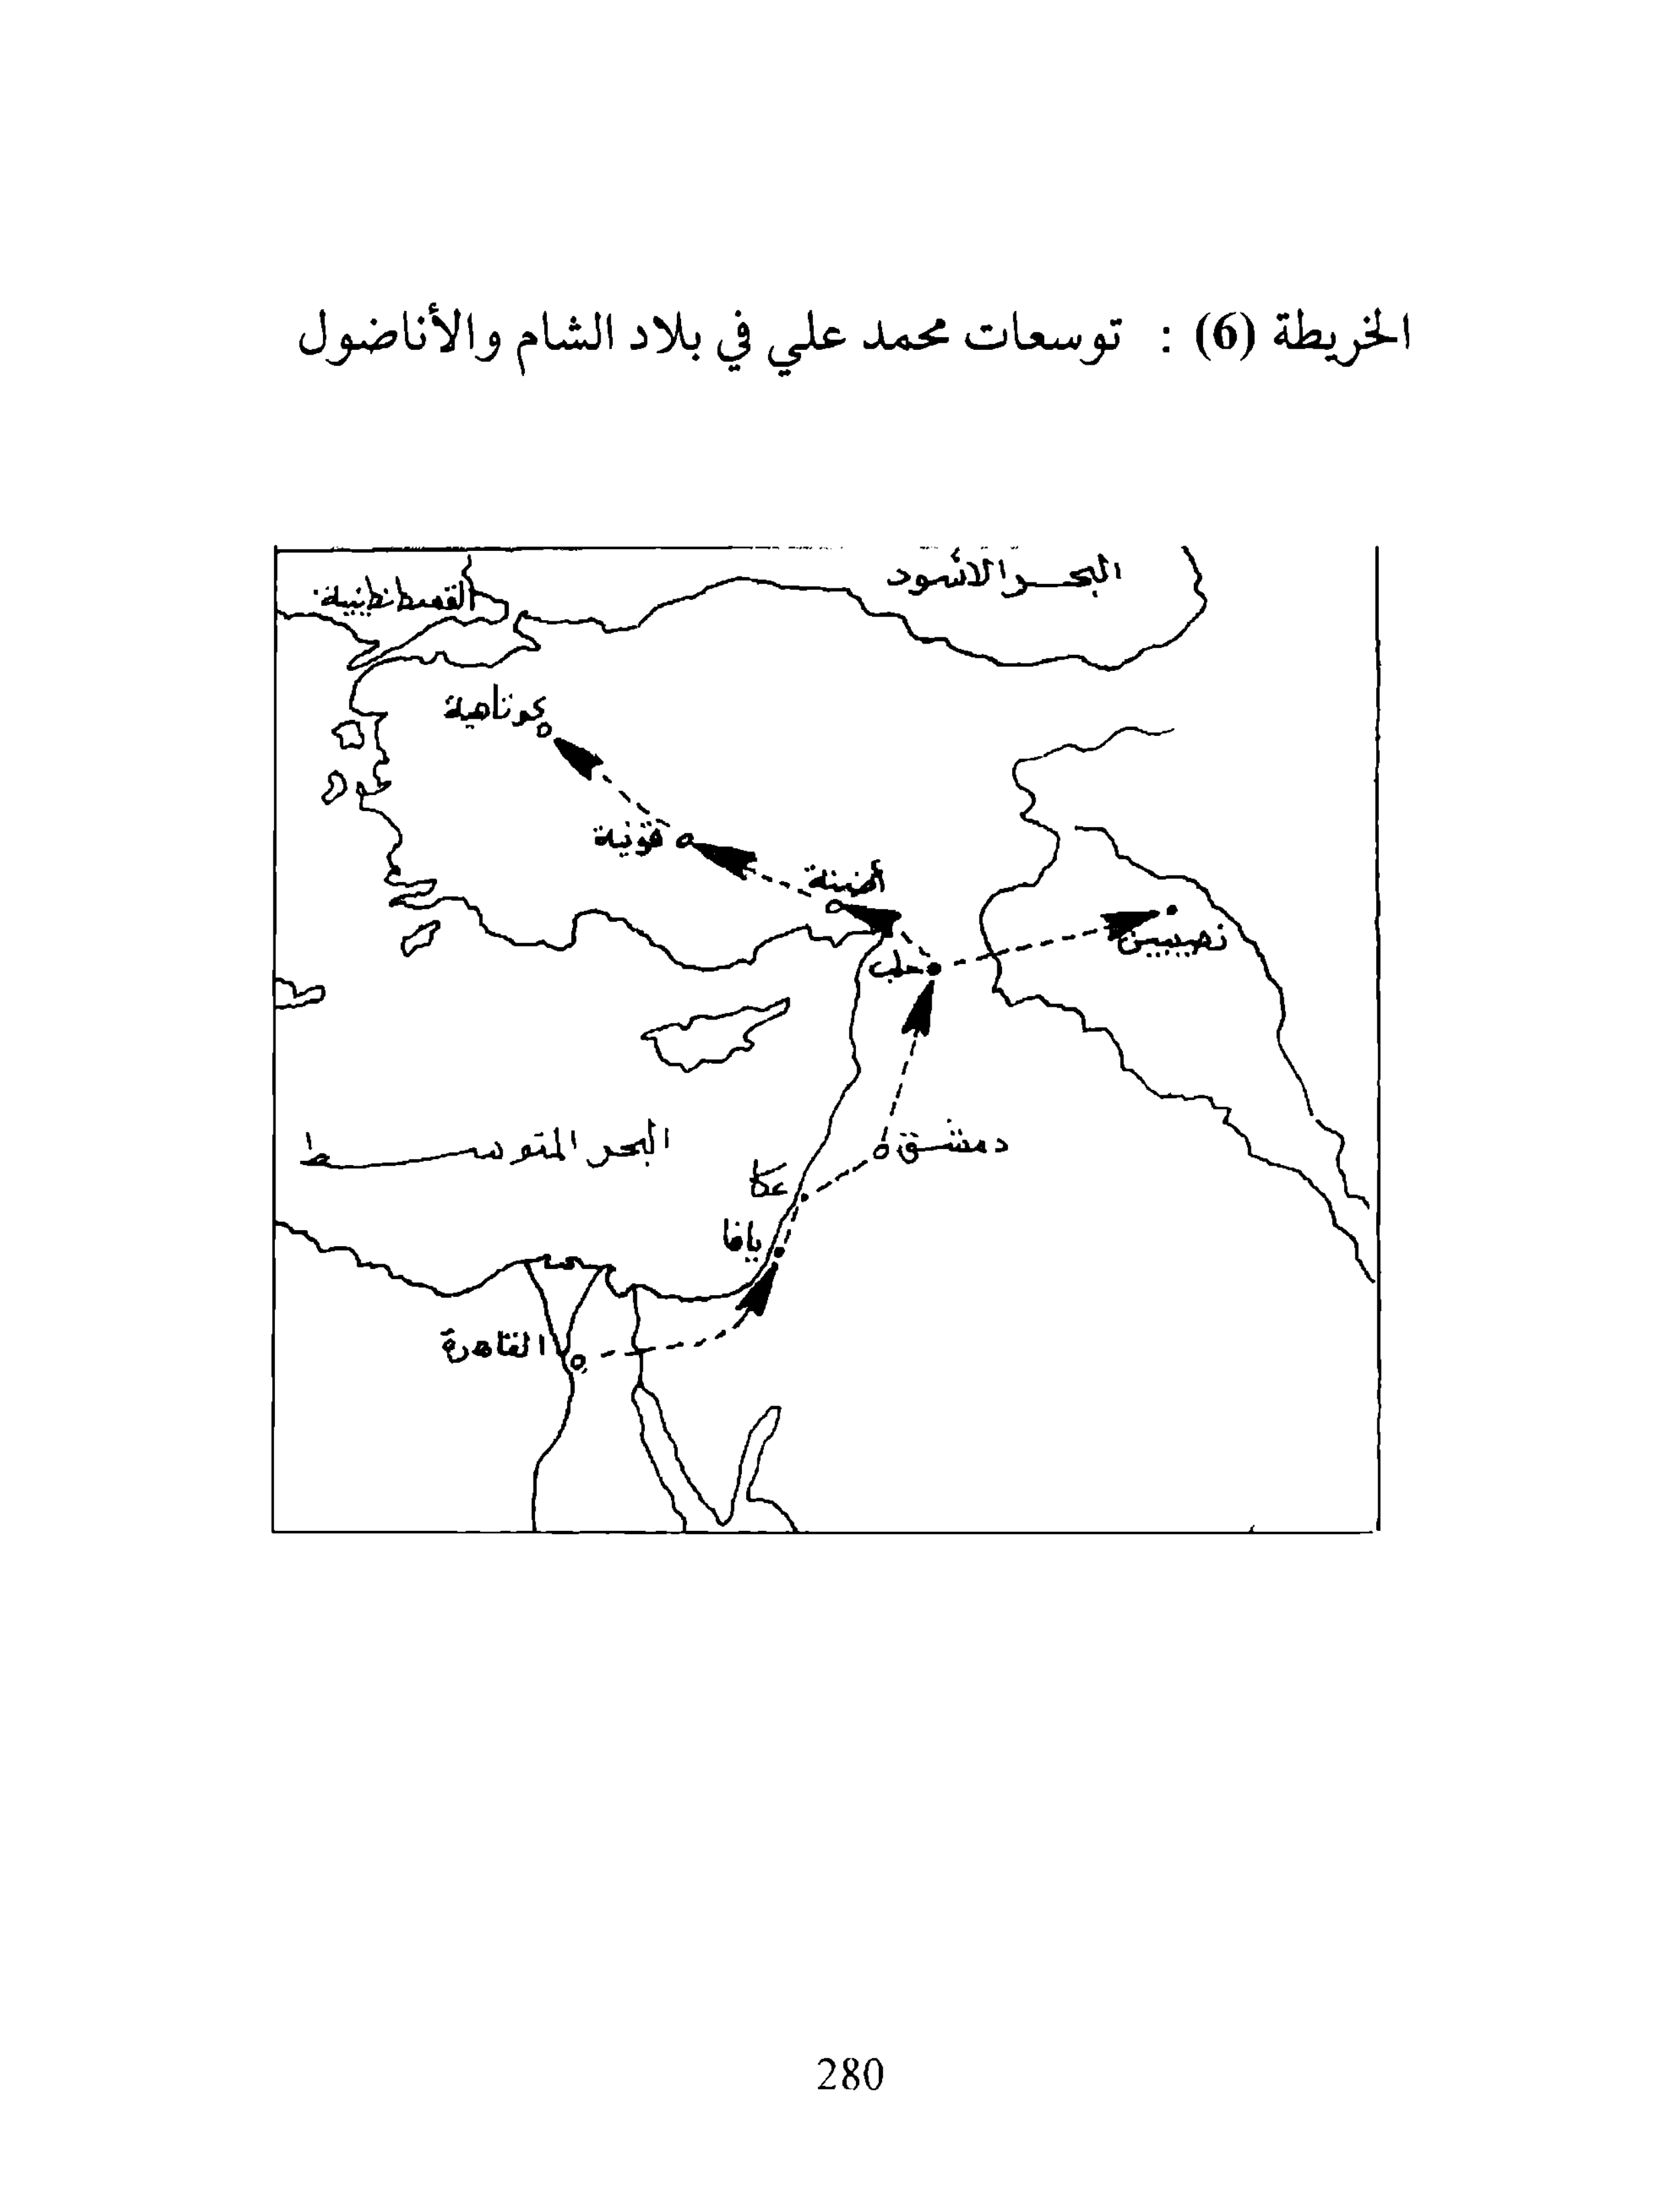 الخريطة (6) : توسعات محمد علي في بلاد الشام والأناضول
البحر الأسود
القسطنطينية
كوتاهية
قونية
أضنة
نصيبين
حلب
البحر المتوسط
دمشق
عكا
يافا
القاهرة
280